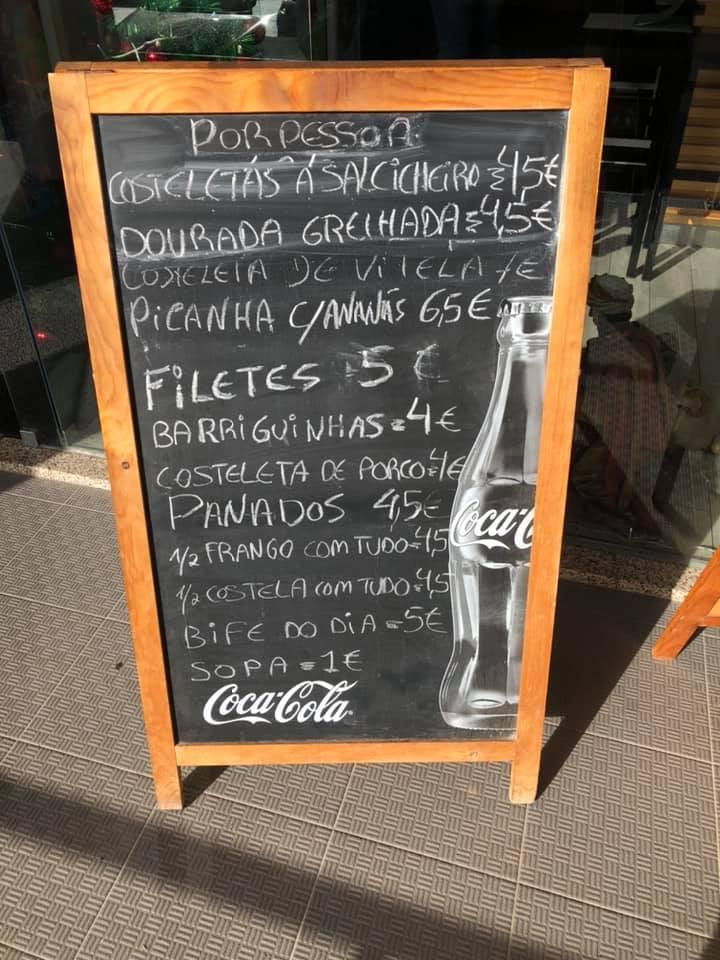 POR PESSOA
COSTELETÁS Á SALCICHEIRO = 4,5€
DOURADA GRELHADA = 4,5€
COSTELETA DE VITELA 7€
PICANHA C/ANANÁS 6,5€
FILETES 5 €
BARRIGUINHAS = 4€
COSTELETA DE PORCO = 4€
PANADOS 4,5€
1/2 FRANGO COM TUDO = 4,5
1/2 COSTELA COM TUDO = 4,5
BIFE DO DIA = 5€
SOPA = 1€
Coca-Cola
Coca-C